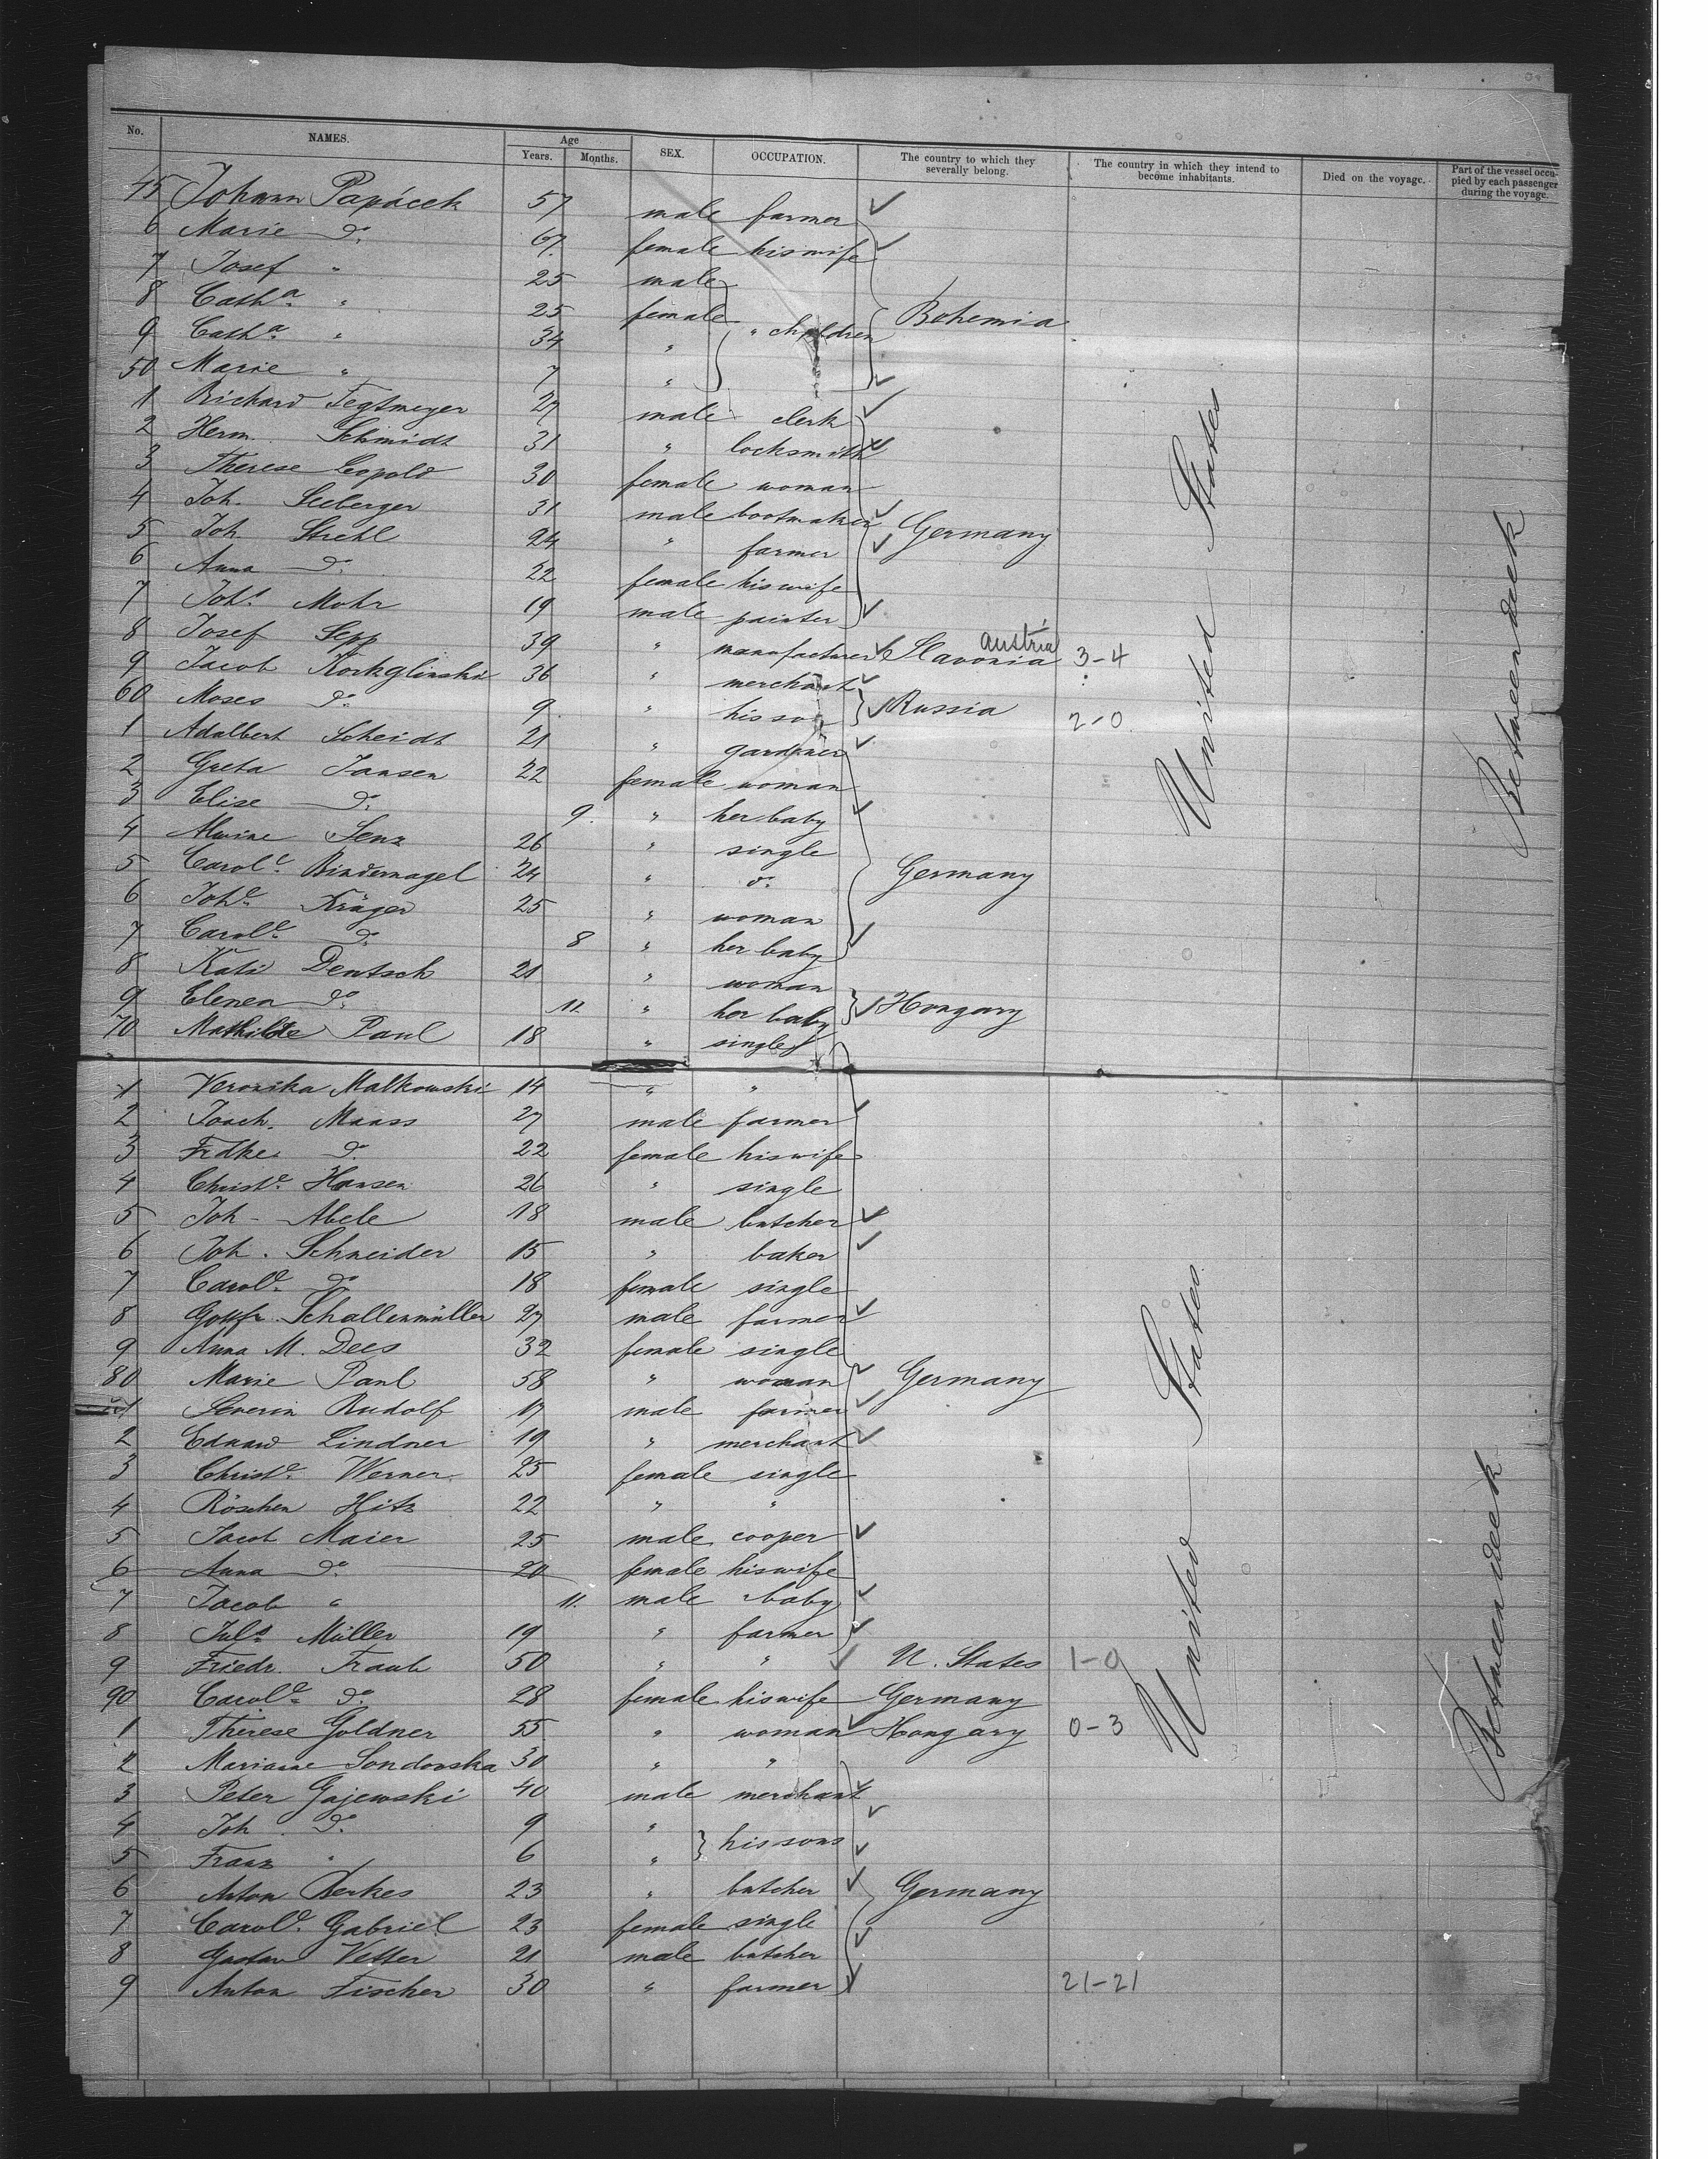 No. NAMES. Age Years. Months. SEX. OCCUPATION. The country to which they severally belong. The country in which they intend to become inhabitants. Died on the voyage. Part of the vessel occupied by each passenger during the voyage.
45 Johann Papácek 57 male farmer
6 Marie do 67. female his wife
7 Josef " 25 male
8 Catha " 25 female Bohemia
9 Catha " 34 " " children
50 Marie " 7 "
1 Richard Tegtmeyer 27 male clerk
2 Herm. Schmidt 31 " locksmith
3 Therese Leopold 30 female woman
4 Joh. Seeberger 31 male bootmaker Germany
5 Joh. Strehl 24 " farmer
6 Anna do 22 female his wife
7 Johs Mohr 19 male painter
8 Josef Sepp 39 " manufacturer Slavonia Austria 3-4
9 Jacob 36 " merchant
60 Moses do 9 " his son Russia 2-0
1 Adalbert Scheidt 21 " gardener
2 Greta Jansen 22 female woman
3 Elise do 9. " her baby
4 Alwine Lenz 26 " single
5 Carole Bindernagel 24 " do Germany
6 Johe Kräger 25 " woman
7 Carole do 8 " her baby
8 Kati Deutsch 21 " woman
9 Elenea do 11. " her baby Hongary
70 Mathilde Paul 18 " single
1 Veronika Malkowski 14 " "
2 Joach. Maass 27 male farmer
3 Frdke do 22 female his wife
4 Christe Hansen 26 " single
5 Joh. Abele 18 male butcher
6 Joh. Schneider 15 " baker
7 Carole do 18 female single
8 Gottfr. Schallenmüller 27 male farmer
9 Anna M. Dees 32 female single
80 Marie Paul 58 " woman Germany
1 Severin Rudolf 17 male farmer
2 Eduard Lindner 19 " merchant
3 Christe Werner 25 female single
4 Röschen Hitz 22 " "
5 Jacob Maier 25 male cooper
6 Anna do 20 female his wife
7 Jacob " 11. male baby
8 Juls Müller 19 " farmer
9 Friedr. Traub 50 " " U. States 1-0
90 Carole do 28 female his wife Germany
1 Therese Goldner 55 " woman Hongary 0-3
2 Mariane Sondovska 30 " "
3 Peter Gajewski 40 male merchant
4 Joh. do 9 " his sons
5 Franz " 6 "
6 Anton Berkes 23 " butcher Germany
7 Carole Gabriel 23 female single
8 Gustav Vetter 21 male butcher
9 Anton Fischer 30 " farmer 21-21
United States
Betweendeck
United States
Betweendeck